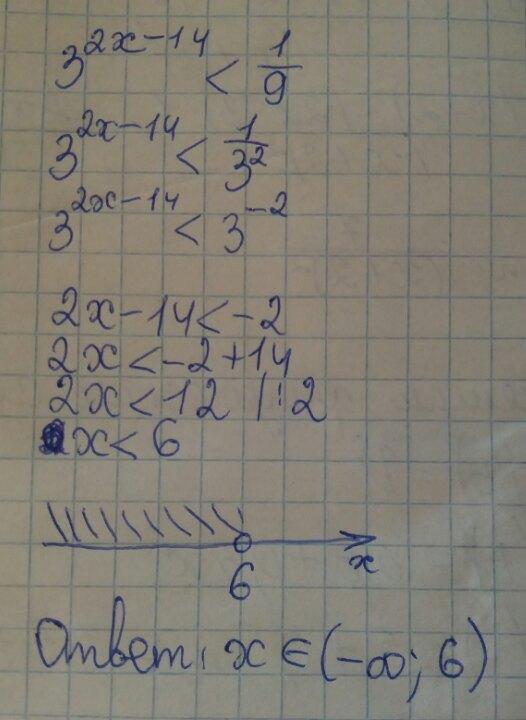 3^{2x-14} < \frac{1}{9}
3^{2x-14} < \frac{1}{3^2}
3^{2x-14} < 3^{-2}
2x-14<-2
2x<-2+14
2x<12 |:2
x<6
6 x
Ответ: x∈(-∞; 6)